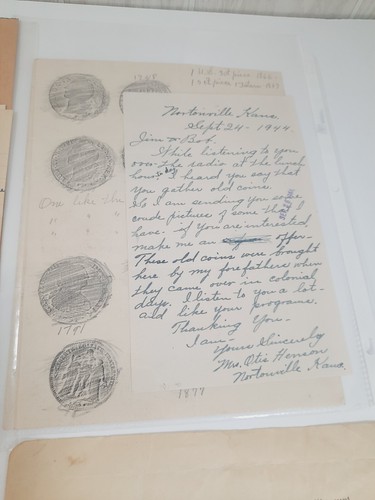 Nortonville Kans.
Sept 24 - 1944
Jim & Bob.
While listening to you
over the radio at the lunch
hour to day I heard you say that
you gether old coins.
So I am sending you some
crude pictures of some that I
have. if you are interested
make me an offer.
These old coins were brought
here by my forefathers when
they came over in colonial
days. I listen to you a lot
and like your programs.
Thanking you -
I am -
Yours Sincerely
Mrs. Otis Henson
Nortonville Kans.
One like the
" " "
1791
1877